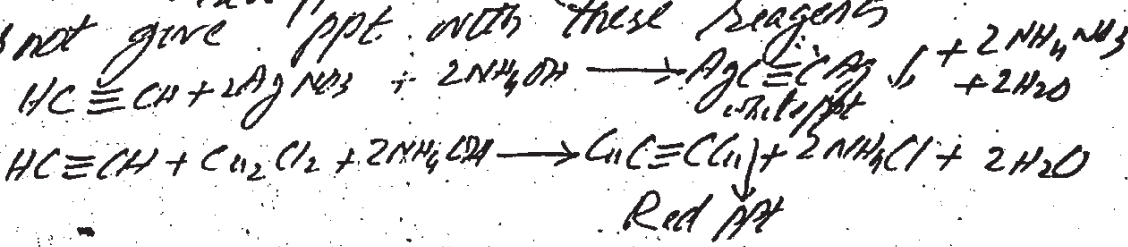 not give ppt with these reagents
HC≡CH + 2AgNO3 + 2NH4OH ⟶ AgC≡CAg ↓ + 2NH4NO3 + 2H2O
white ppt
HC≡CH + Cu2Cl2 + 2NH4OH ⟶ CuC≡CCu ↓ + 2NH4Cl + 2H2O
Red ppt